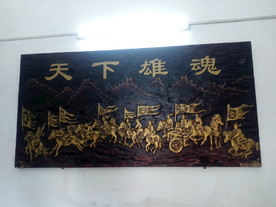 天下雄魂